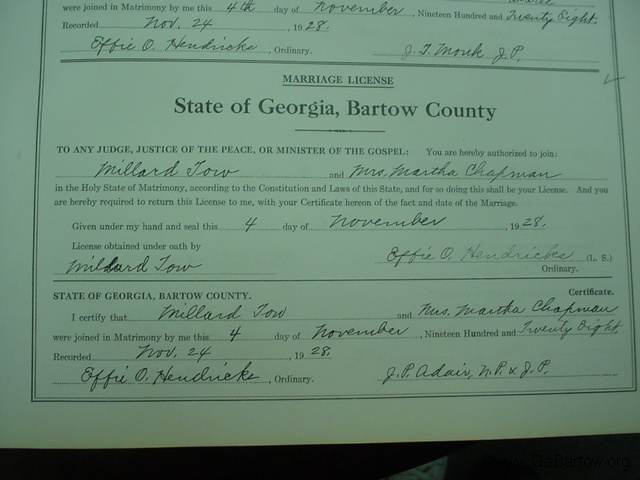 were joined in Matrimony by me this 4th day of November, Nineteen Hundred and Twenty Eight.
Recorded Nov. 24, 1928.
Effie O. Hendricks, Ordinary. J. T. Monk J.P.
MARRIAGE LICENSE
State of Georgia, Bartow County
TO ANY JUDGE, JUSTICE OF THE PEACE, OR MINISTER OF THE GOSPEL: You are hereby authorized to join:
Millard Tow and Mrs. Martha Chapman
in the Holy State of Matrimony, according to the Constitution and Laws of this State, and for so doing this shall be your License. And you
are hereby required to return this License to me, with your Certificate hereon of the fact and date of the Marriage.
Given under my hand and seal this 4 day of November, 1928.
License obtained under oath by Effie O. Hendricks (L. S.)
Millard Tow Ordinary.
STATE OF GEORGIA, BARTOW COUNTY. Certificate.
I certify that Millard Tow and Mrs. Martha Chapman
were joined in Matrimony by me this 4 day of November, Nineteen Hundred and Twenty Eight.
Recorded Nov. 24, 1928.
Effie O. Hendricks, Ordinary. J. P. Adair, N.P. & J.P.
GaBartow.org